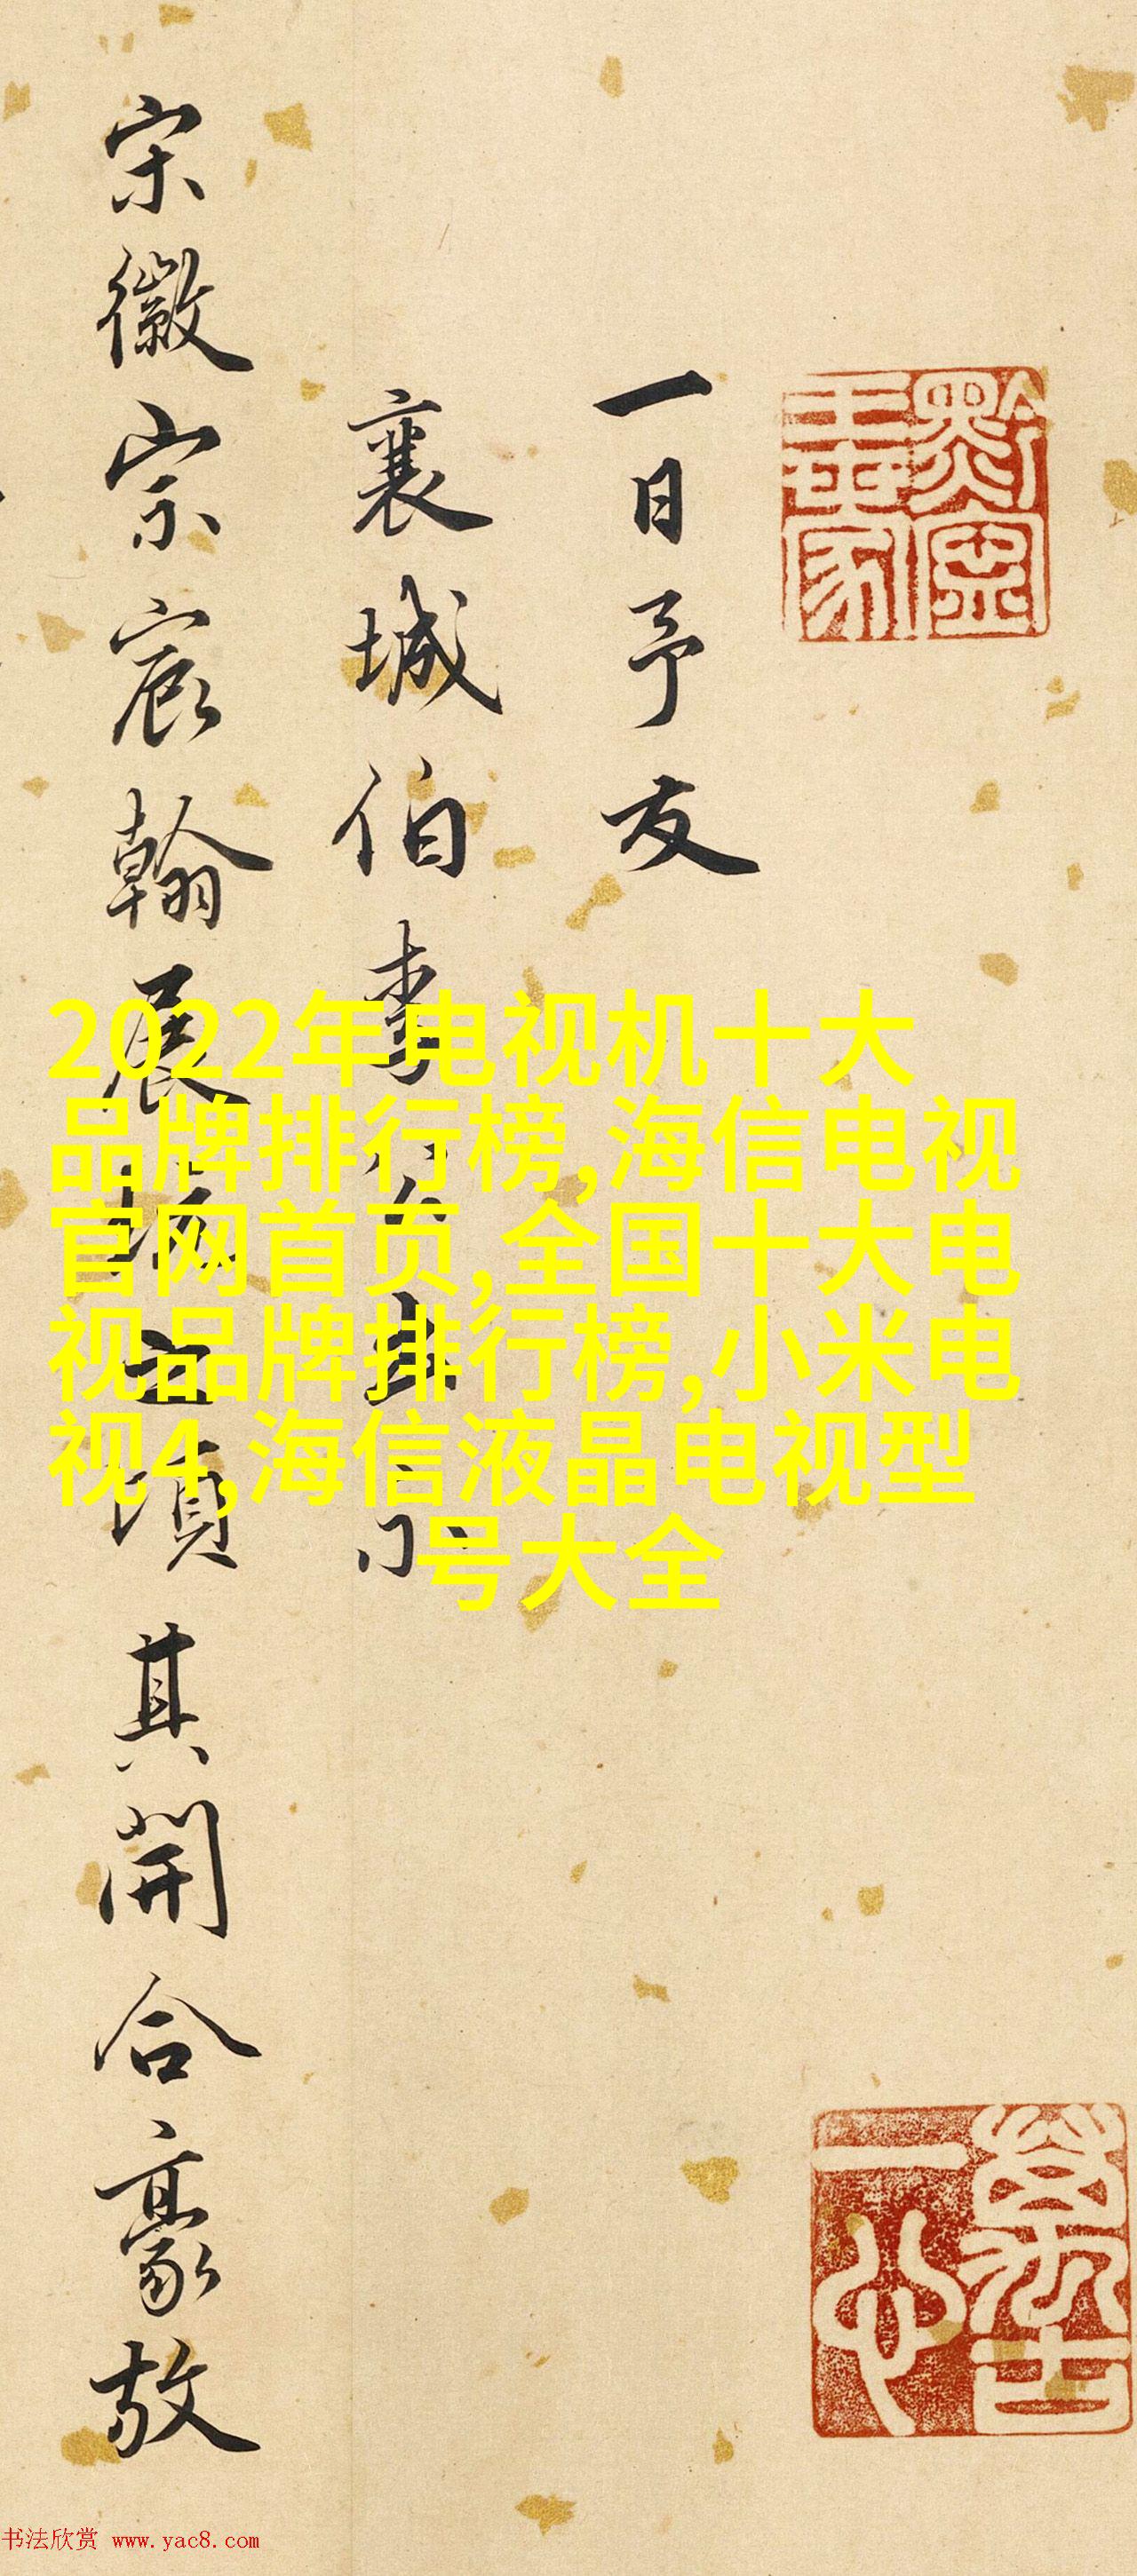 黔寧王世家
萬古一心
一日予友
襄城伯李
宋徽宗宸翰展
頃其開合豪放
2022年电视机十大
品牌排行榜,海信电视
官网首页,全国十大电
视品牌排行榜,小米电
视4,海信液晶电视型
号大全
书法欣赏 www.yac8.com